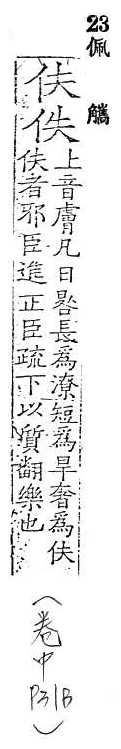 23
佩觿
佚佚
上音膚凡日晷長為潦短為旱奢為佚
佚者邪臣進正臣疏下以質翻樂也
（卷中P31B）